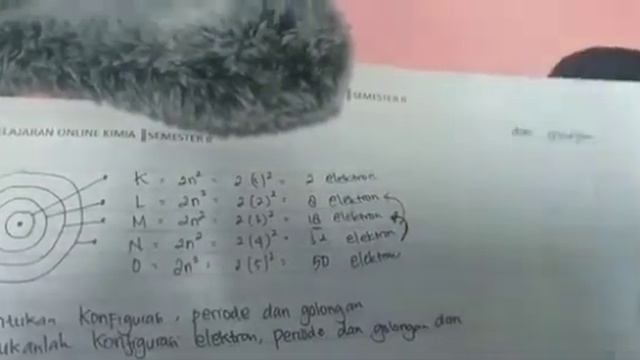 SEMESTER II
ELAJARAN ONLINE KIMIA || SEMESTER II
dan golongan
K = 2n² = 2(1)² = 2 elektron
L = 2n² = 2(2)² = 8 elektron
M = 2n² = 2(3)² = 18 elektron
N = 2n² = 2(4)² = 32 elektron
O = 2n² = 2(5)² = 50 elektron
ntukan Konfigurasi, periode dan golongan
ukanlah Konfigurasi elektron, periode dan golongan dan